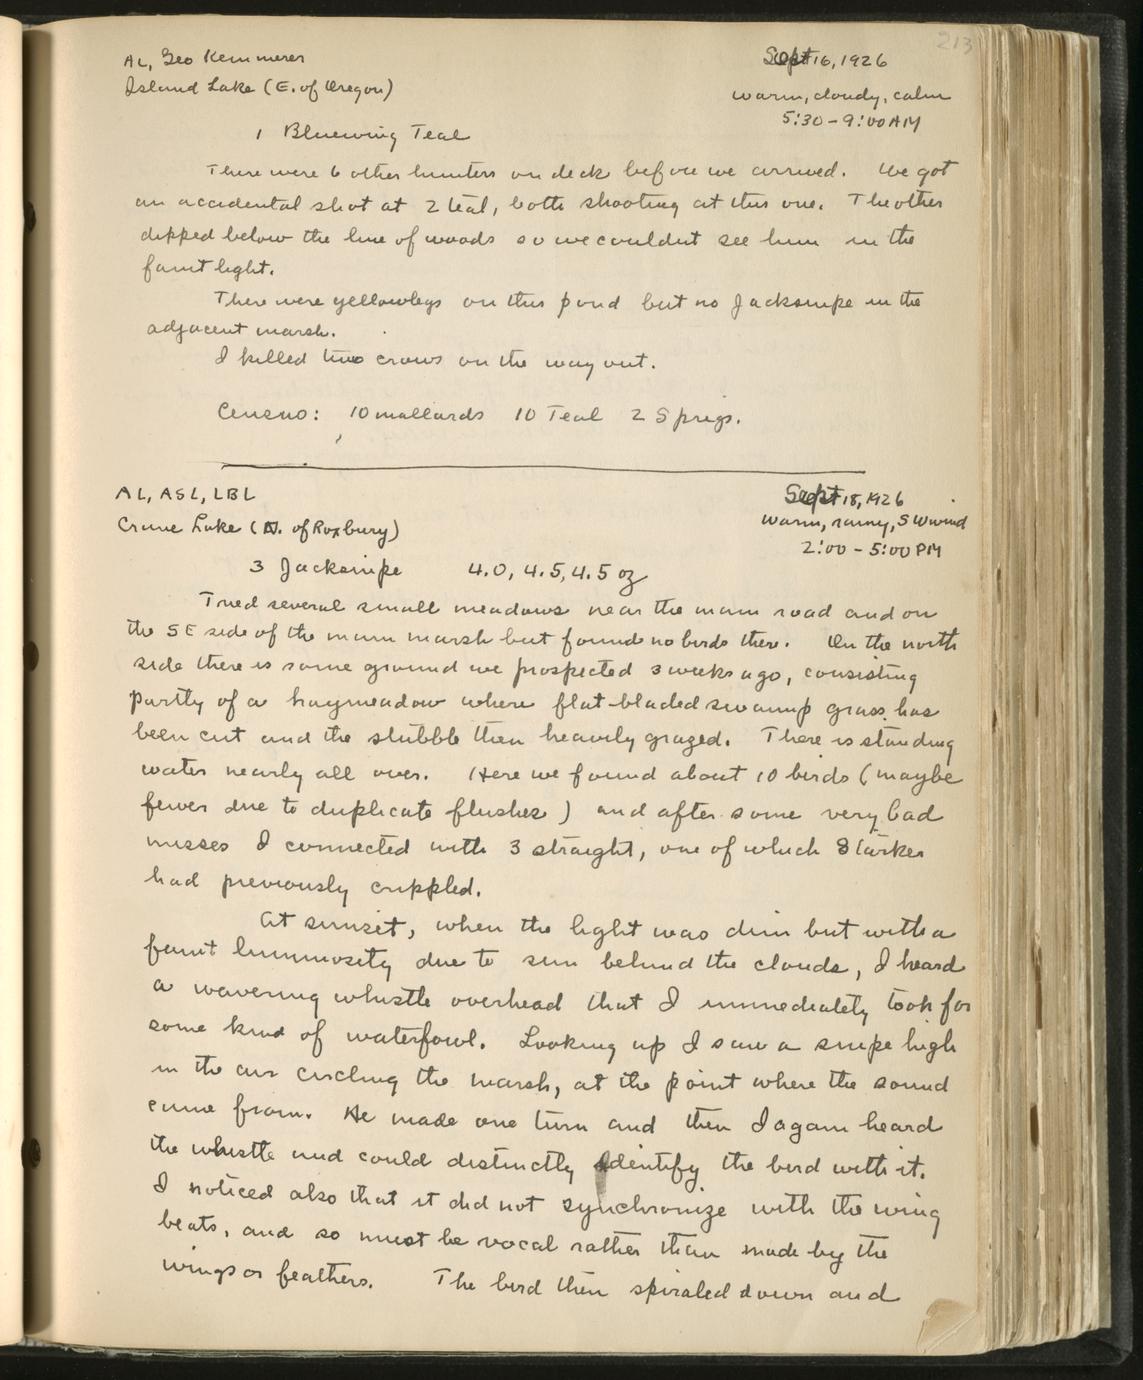 213
AL, Geo Kemmerer
Sept 16, 1926
Island Lake (E. of Oregon)
warm, cloudy, calm
5:30 - 9:00 AM
1 Bluewing Teal
There were 6 other hunters on deck before we arrived. We got
an accidental shot at 2 teal, both shooting at this one. The other
dipped below the line of woods so we couldnt see him in the
faint light.
There were yellowlegs on this pond but no Jacksnipe in the
adjacent marsh.
I killed two crows on the way out.
Census: 10 mallards 10 Teal 2 Sprigs.
AL, ASL, LBL
Sept 18, 1926
Crane Lake (N. of Roxbury)
warm, rainy, SW wind
2:00 - 5:00 PM
3 Jacksnipe 4.0, 4.5, 4.5 oz
Tried several small meadows near the main road and on
the SE side of the main marsh but found no birds there. On the north
side there is some ground we prospected 3 weeks ago, consisting
partly of a haymeadow where flat-bladed swamp grass has
been cut and the stubble then heavily grazed. There is standing
water nearly all over. Here we found about 10 birds (maybe
fewer due to duplicate flushes) and after some very bad
misses I connected with 3 straight, one of which Starker
had previously crippled.
At sunset, when the light was dim but with a
faint luminosity due to sun behind the clouds, I heard
a wavering whistle overhead that I immediately took for
some kind of waterfowl. Looking up I saw a snipe high
in the air circling the marsh, at the point where the sound
came from. He made one turn and then I again heard
the whistle and could distinctly identify the bird with it.
I noticed also that it did not synchronize with the wing
beats, and so must be vocal rather than made by the
wings or feathers. The bird then spiraled down and